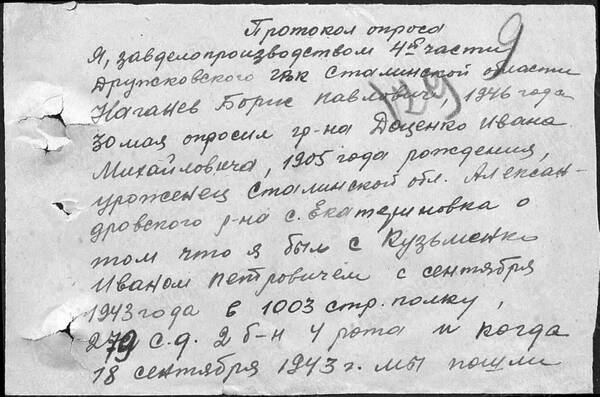 Протокол опроса
Я, завделопроизводством 4й части
Дружковского ГВК Сталинской области
Нагачев Борис Павлович, 1946 года
30 мая опросил гр-на Доценко Ивана
Михайловича, 1905 года рождения,
уроженец Сталинской обл. Александ-
дровского р-на с. Екатериновка о
том что я был с Кузьменко
Иваном Петровичем с сентября
1943 года в 1003 стр. полку,
279 с.д. 2 б-н 4 рота и когда
18 сентября 1943 г. мы пошли